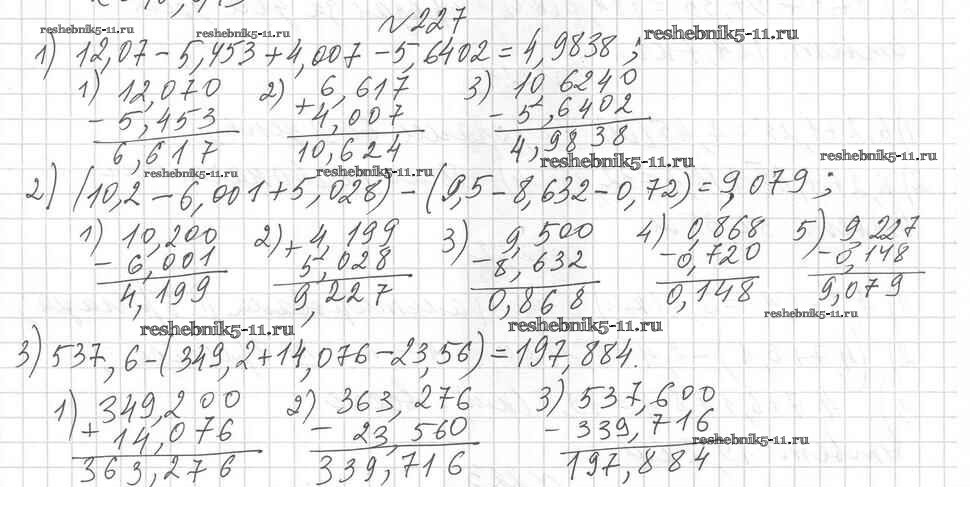 №227
reshebnik5-11.ru reshebnik5-11.ru reshebnik5-11.ru
1) 12,07 - 5,453 + 4,007 - 5,6402 = 4,9838 ;
1) 12,070 2) 6,617 3) 10,6240
- 5,453 + 4,007 - 5,6402
6,617 10,624 4,9838
reshebnik5-11.ru reshebnik5-11.ru reshebnik5-11.ru reshebnik5-11.ru
2) (10,2 - 6,001 + 5,028) - (9,5 - 8,632 - 0,72) = 9,079 ;
1) 10,200 2) 4,199 3) 9,500 4) 0,868 5) 9,227
- 6,001 + 5,028 - 8,632 - 0,720 - 0,148
4,199 9,227 0,868 0,148 9,079
reshebnik5-11.ru reshebnik5-11.ru reshebnik5-11.ru
3) 537,6 - (349,2 + 14,076 - 23,56) = 197,884.
1) 349,200 2) 363,276 3) 537,600
+ 14,076 - 23,560 - 339,716
reshebnik5-11.ru
363,276 339,716 197,884